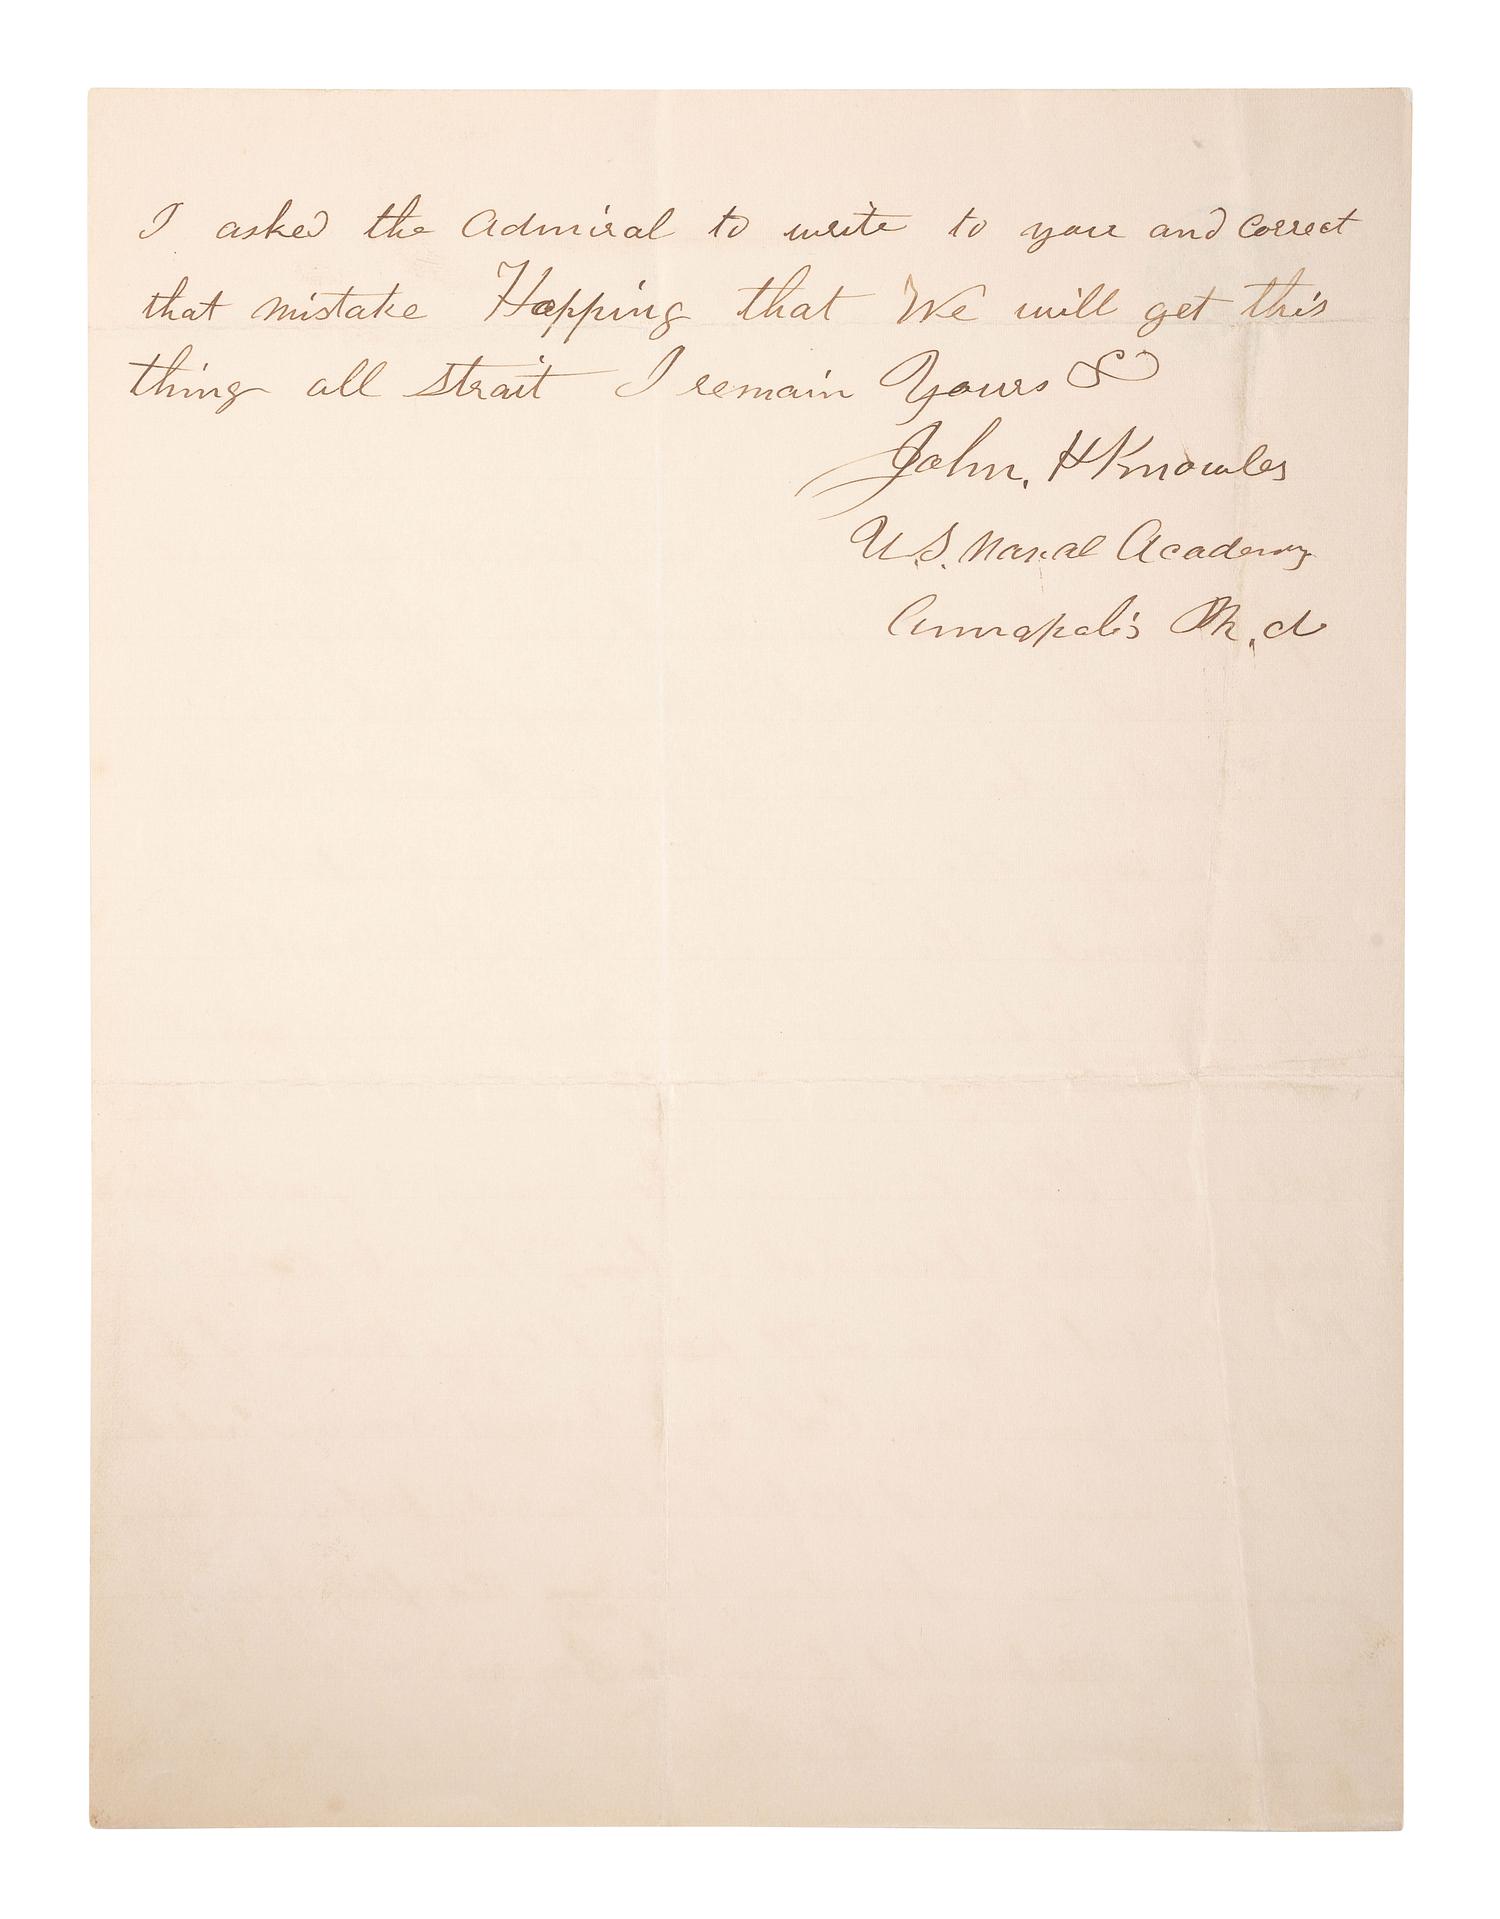 I asked the Admiral to write to you and correct
that mistake Hopping that We will get this
thing all strait I remain Yours &
John. H Knowles
U.S. Naval Academy
Annapolis M.d